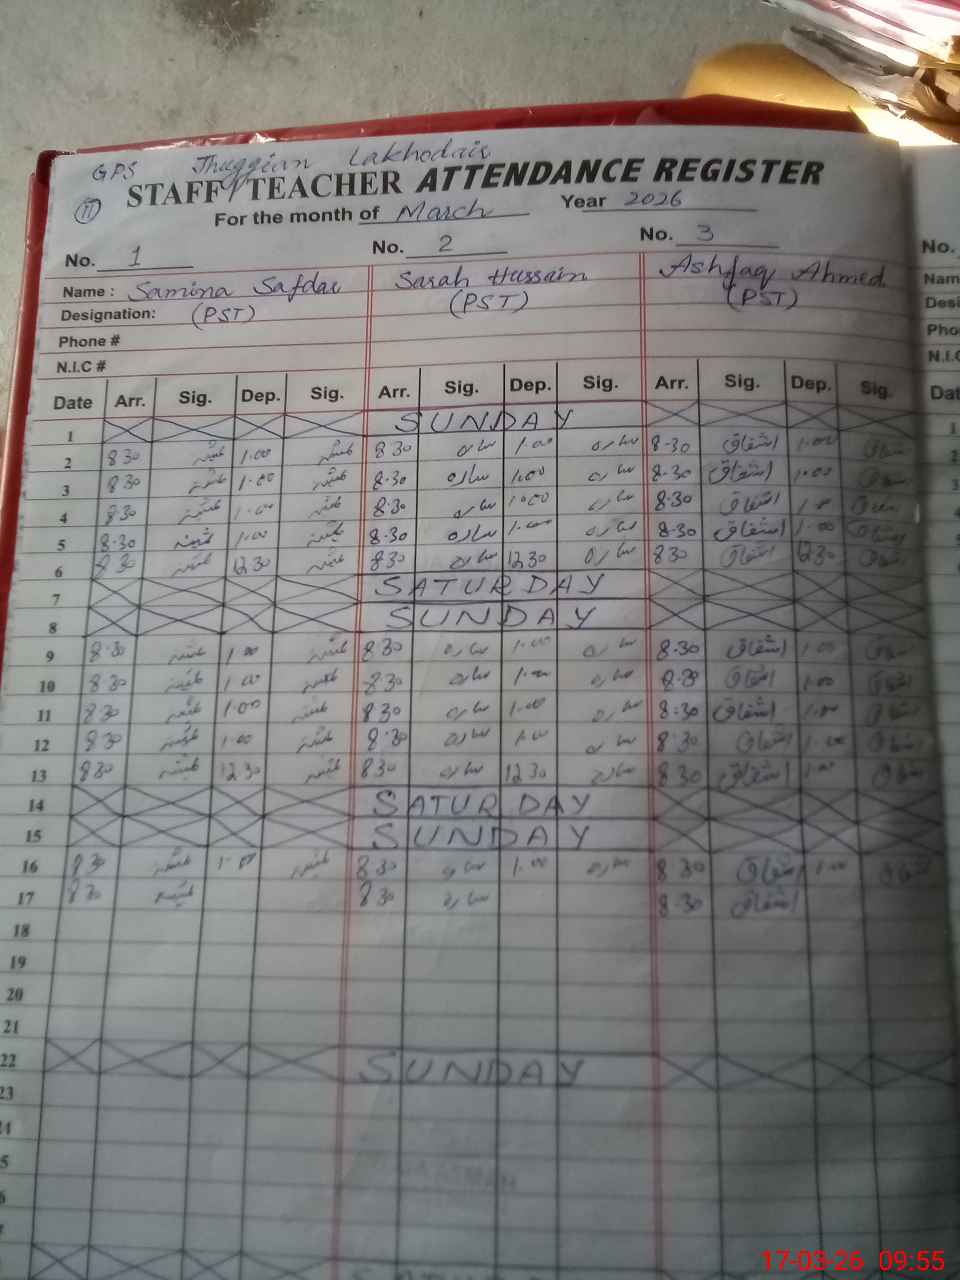 GPS Jhuggian Lakhodair
11 STAFF/TEACHER ATTENDANCE REGISTER
For the month of March Year 2026
No. 1 No. 2 No. 3 No.
Name : Samina Safdar Sarah Hussain Ashfaq Ahmed Nam
Designation: (PST) (PST) (PST) Desi
Phone # Pho
N.I.C # N.I.C
Date Arr. Sig. Dep. Sig. Arr. Sig. Dep. Sig. Arr. Sig. Dep. Sig. Dat
1 SUNDAY 1
2 8 30 1.00 8 30 سارہ 1.00 سارہ 8-30 اشفاق 1.00 اشفاق 2
3 8 30 1.00 8.30 سارہ 1.00 سارہ 8-30 اشفاق 1.00 اشفاق
4 8.30 1.00 8.30 سارہ 1.00 سارہ 8.30 اشفاق 1.00 اشفاق
5 8-30 1.00 8.30 سارہ 1.00 سارہ 8.30 اشفاق 1.00 اشفاق
6 8 30 12 30 8 30 سارہ 12 30 سارہ 8 30 اشفاق 12 30 اشفاق
7 SATURDAY
8 SUNDAY
9 8.30 1.00 8 30 سارہ 1.00 سارہ 8.30 اشفاق 1.00 اشفاق
10 8 30 1.00 8 30 سارہ 1.00 سارہ 8.30 اشفاق 1.00 اشفاق
11 8 30 1.00 8 30 سارہ 1.00 سارہ 8.30 اشفاق 1.00 اشفاق
12 8 30 1.00 8.30 سارہ 1.00 سارہ 8.30 اشفاق 1.00 اشفاق
13 8 30 12 30 8 30 سارہ 12 30 سارہ 8 30 اشفاق 1.00 اشفاق
14 SATURDAY
15 SUNDAY
16 8 30 1.00 8 30 سارہ 1.00 سارہ 8 30 اشفاق 1.00 اشفاق
17 8 30 8 30 سارہ 8-30 اشفاق
18
19
20
21
22 SUNDAY
23
17-03-26 09:55